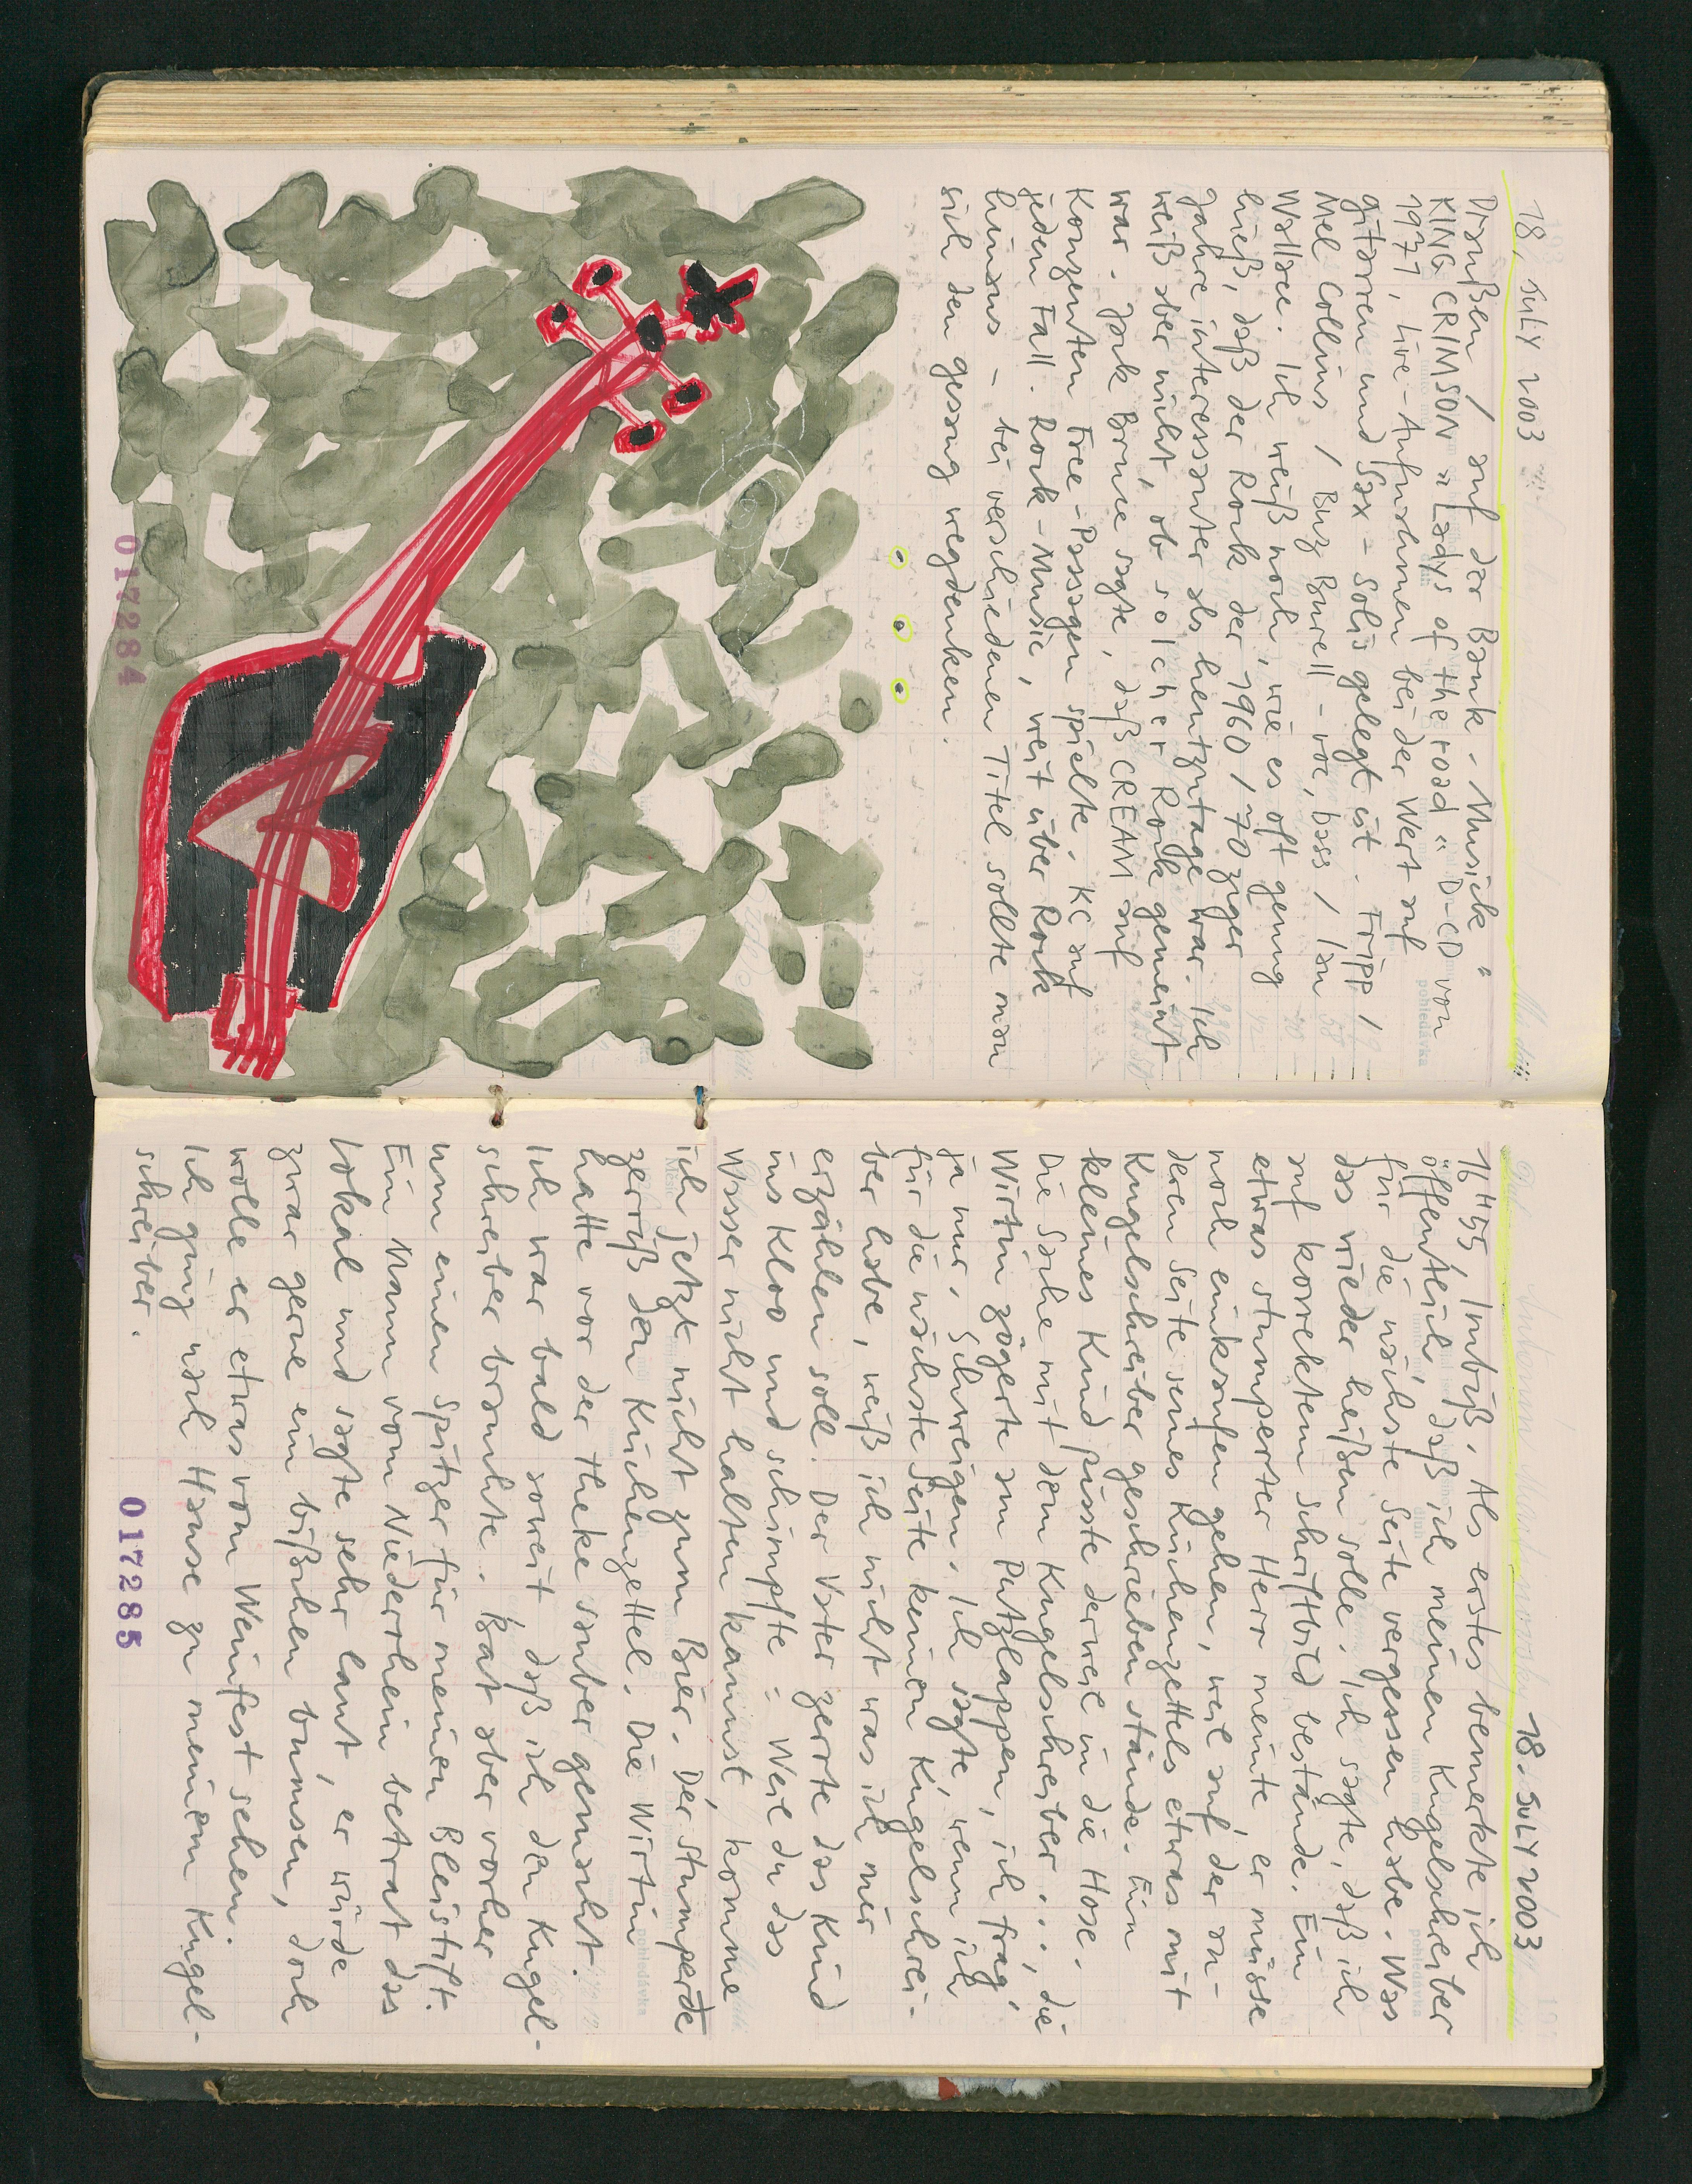 18, JULY 2003
Draußen / auf der Bank. Musick "
KING CRIMSON "Ladys of the road" D-CD von
1971, Live-Aufnahmen bei der Wert auf
gitarren und Sax-Solis gelegt ist. Fripp /
Mel Collins / Buz Burell - voc, bass / Ian
Wallace. Ich weiß noch, wie es oft genug
hieß, daß der Rock der 1960/70ziger
Jahre interessanter als heutzutage war. Ich
weiß aber nicht, ob solcher Rock gemeint
war. Jack Bruce sagte, daß CREAM auf
Konzerten Free-Passagen spielte. KC auf
jeden Fall. Rock-Music, weit über Rock
hinaus – bei verschiedenen Titel sollte man
sich den gesang wegdenken.
017284
18. JULY 2003
16 H 55 / Imbiß. Als erstes bemerkte ich
öffentlich, daß ich meinen Kugelschreiber
für die nächste Seite vergessen habe. Was
das wieder heißen solle. Ich sagte, daß ich
auf korrektem schriftbild bestände. Ein
etwas stumperter Herr meinte, er müsse
noch einkaufen gehen, weil auf der an-
deren Seite seines Küchenzettels etwas mit
Kugelschreiber geschrieben stände. Ein
kleines Kind pisste derweil in die Hose.
Die Sache mit dem Kugelschreiber..., die
Wirtin zögerte am Putzlappen, ich frag'
ja nur. Schweigen. Ich sagte, wenn ich
für die nächste Seite keinen Kugelschrei-
ber habe, weiß ich nicht was ich mir
erzählen soll. Der Vater zerrte das Kind
ins Kloo und schimpfte: Weil du das
Wasser nicht halten kannst, komme
ich jetzt nicht zum Bier. Der stumperde
zerriß den Küchenzettel. Die Wirtin
hatte vor der Theke sauber gemacht.
Ich war bald soweit, daß ich den Kugel-
schreiber brauchte. Bat aber vorher
um einen Spitzer für meinen Bleistift.
Ein Mann vom Niederrhein betrat das
Lokal und sagte sehr laut, er würde
zwar gerne ein bißchen bumsen, doch
wolle er etwas vom Weinfest sehen.
Ich ging nach Hause zu meinem Kugel-
schreiber.
017285